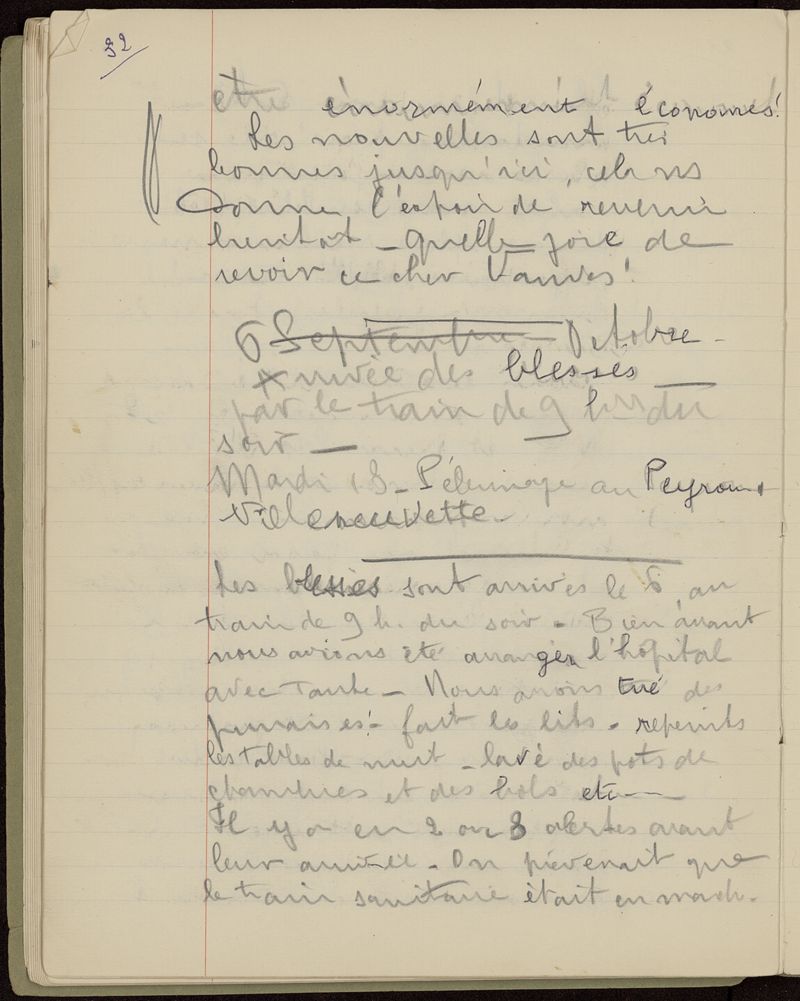 32
être énormément économes!
Les nouvelles sont très
bonnes jusqu'ici, cela ns
donne l'espoir de revenir
bientôt – quelle joie de
revoir ce cher Vanves!
6 Septembre Octobre –
Arrivée des blessés
par le train de 9 hrs du
soir –
Mardi 13 – Pélerinage au Peyrou +
Villeneuvette –
Les blessés sont arrivés le 6 au
train de 9 h. du soir – Bien avant
nous avions été arranger l'hôpital
avec Tante – Nous avons tué des
punaises! – fait les lits – repeints
les tables de nuit – lavé des pots de
chambres et des bols etc –
Il y a eu 2 ou 3 alertes avant
leur arrivée – On prévenait que
le train sanitaire était en march.